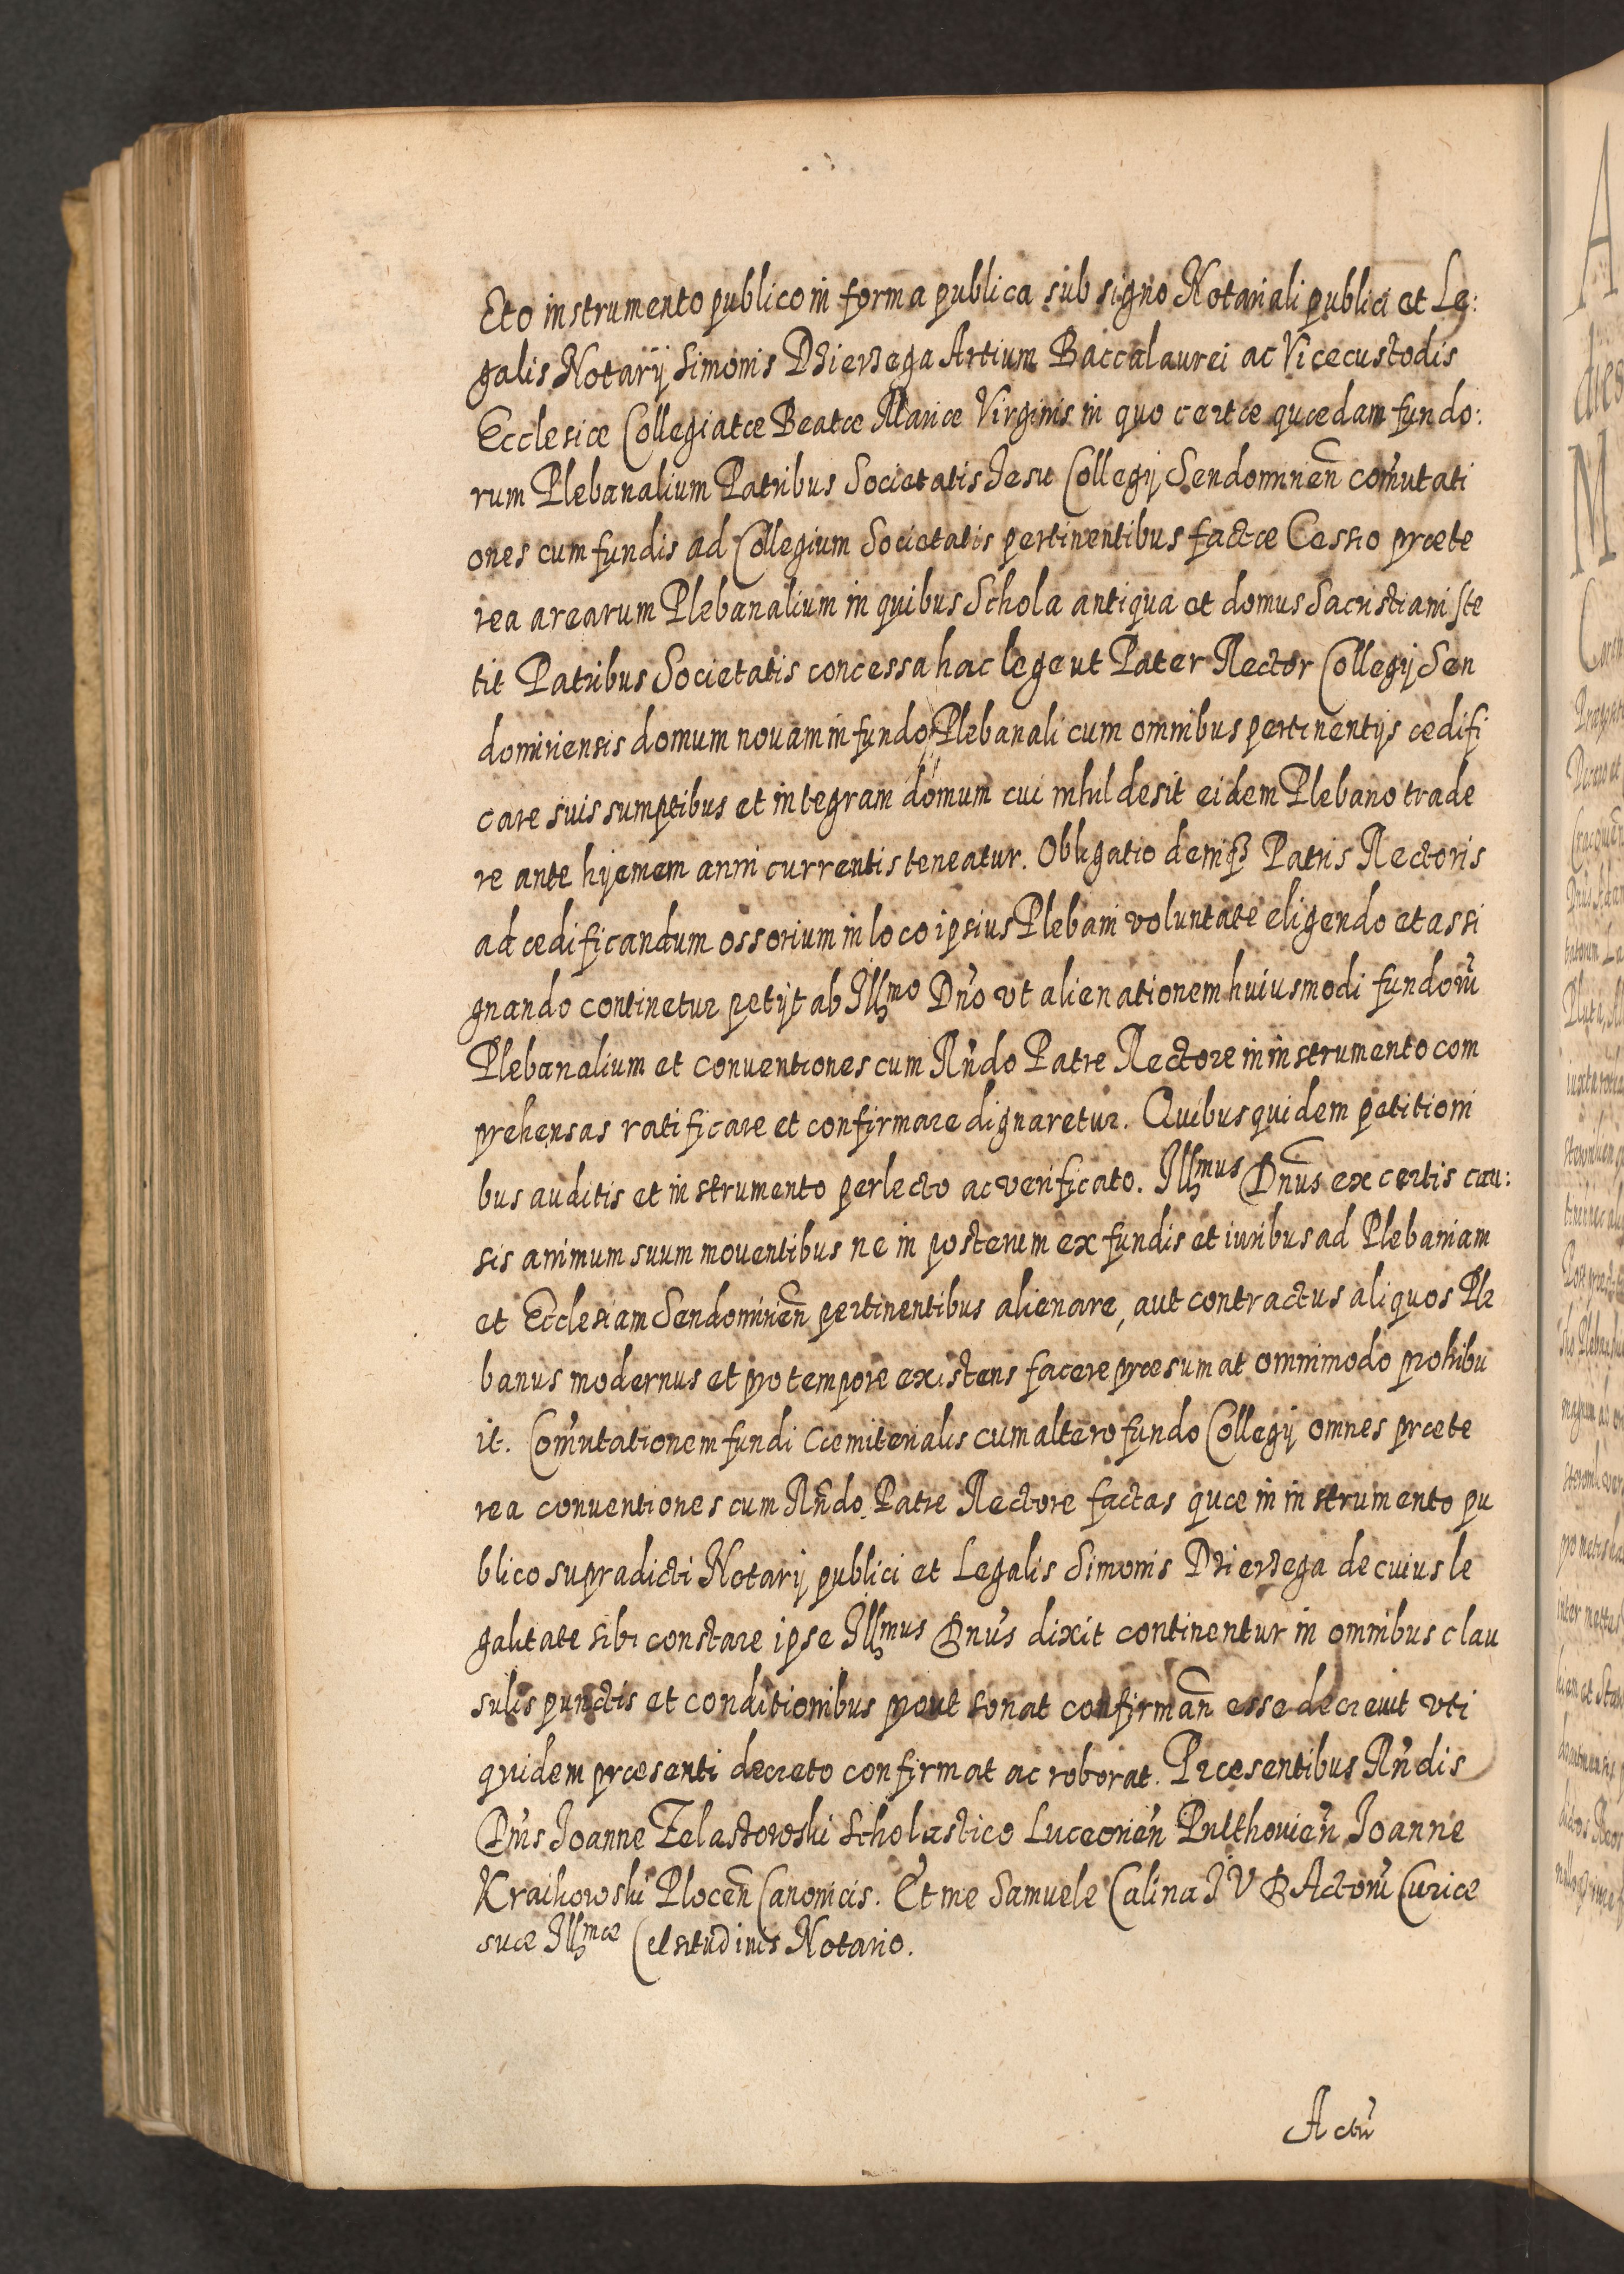 Eto instrumento publico in forma publica sub signo Notariali publici et Le:
galis Notarÿ Simonis Dzierzega Artium Baccalaurei ac Vicecustodis
Ecclesiæ Collegiatæ Beatæ Mariæ Virginis in quo certæ quædam fundo:
rum Plebanalium Patribus Societatis Jesu Collegij Sendomirien̄ com̃utati
ones cum fundis ad Collegium Societatis pertinentibus factæ Cessio præte
rea arearum Plebanalium in quibus Schola antiqua et domus Sacristiani ste
tit Patribus Societatis concessa hac lege ut Pater Rector Collegij Sen
domiriensis domum nouam in fundo Plebanali cum omnibus pertinentijs ædifi
care suis sumptibus et integram domum cui nihil desit eidem Plebano trade
re ante hyemem anni currentis teneatur. Obligatio deniqꝫ Patris Rectoris
ad ædificandum ossorium in loco ipsius Plebani voluntate eligendo et assi
gnando continetur petijt ab Illmo Dn̄o vt alienationem huiusmodi fundorū
Plebanalium et conuentiones cum Rn̄do Patre Rectore in instrumento com
prehensas ratificare et confirmare dignaretur. Quibus quidem petitioni
bus auditis et instrumento perlecto ac verificato. Illmus Dn̄us ex certis cau:
sis animum suum mouentibus ne in posterum ex fundis et iuribus ad Plebaniam
et Ecclesiam Sendomirien̄ pertinentibus alienare, aut contractus aliquos Ple
banus modernus et pro tempore existens facere præsumat omnimodo prohibu
it. Com̃utationem fundi Cæmiterialis cum altero fundo Collegij omnes præte
rea conuentiones cum Rn̄do Patre Rectore factas quæ in instrumento pu
blico supradicti Notarij publici et Legalis Simonis Dzierzega de cuius le
galitate sibi constare ipse Illmus Dn̄us dixit continentur in omnibus clau
sulis punctis et conditionibus prout sonat confirman̄ esse decreuit vti
quidem præsenti decreto confirmat ac roborat. Præsentibus Rn̄dis
Dn̄is Joanne Zelastowski Scholastico Luceorien̄ Pulthouien̄ Joanne
Kraikowski Plocen̄ Canonicis. Et me Samuele Calina J V D Actorū Curiæ
suæ Illmæ Celsitudinis Notario.
Actū